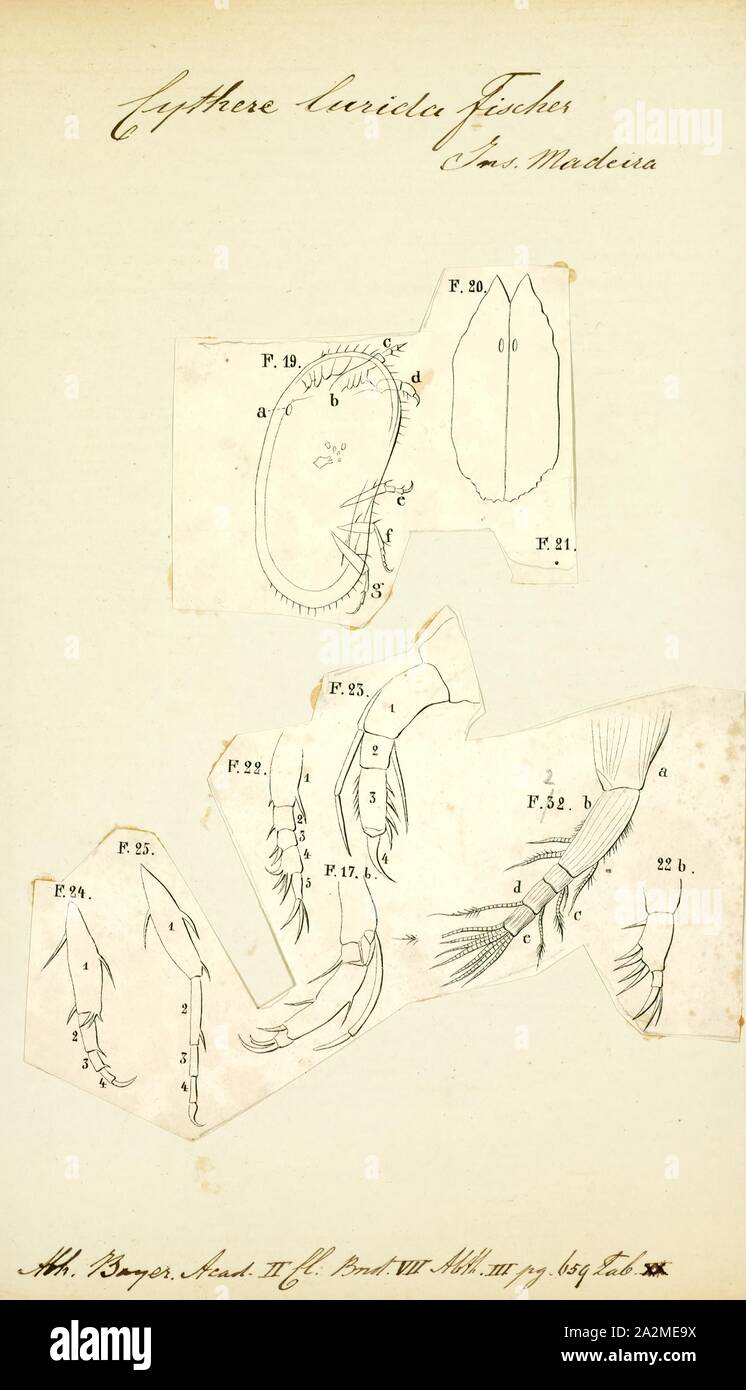 Cythere lurida Fischer
Ins. Madeira
F. 20.
F. 19.
c
d
a
b
e
f
g
F. 21.
F. 23.
1
2
3
4
F. 22.
1
2
3
4
5
2
F. 32.
a
b
c
d
e
22 b.
F. 17. b.
F. 25.
1
2
3
4
F. 24.
1
2
3
4
Abh. Bayer. Acad. II Cl. VII Abth. III pg. 659 Tab.
alamy
alamy
Image ID: 2A2ME9X
www.alamy.com